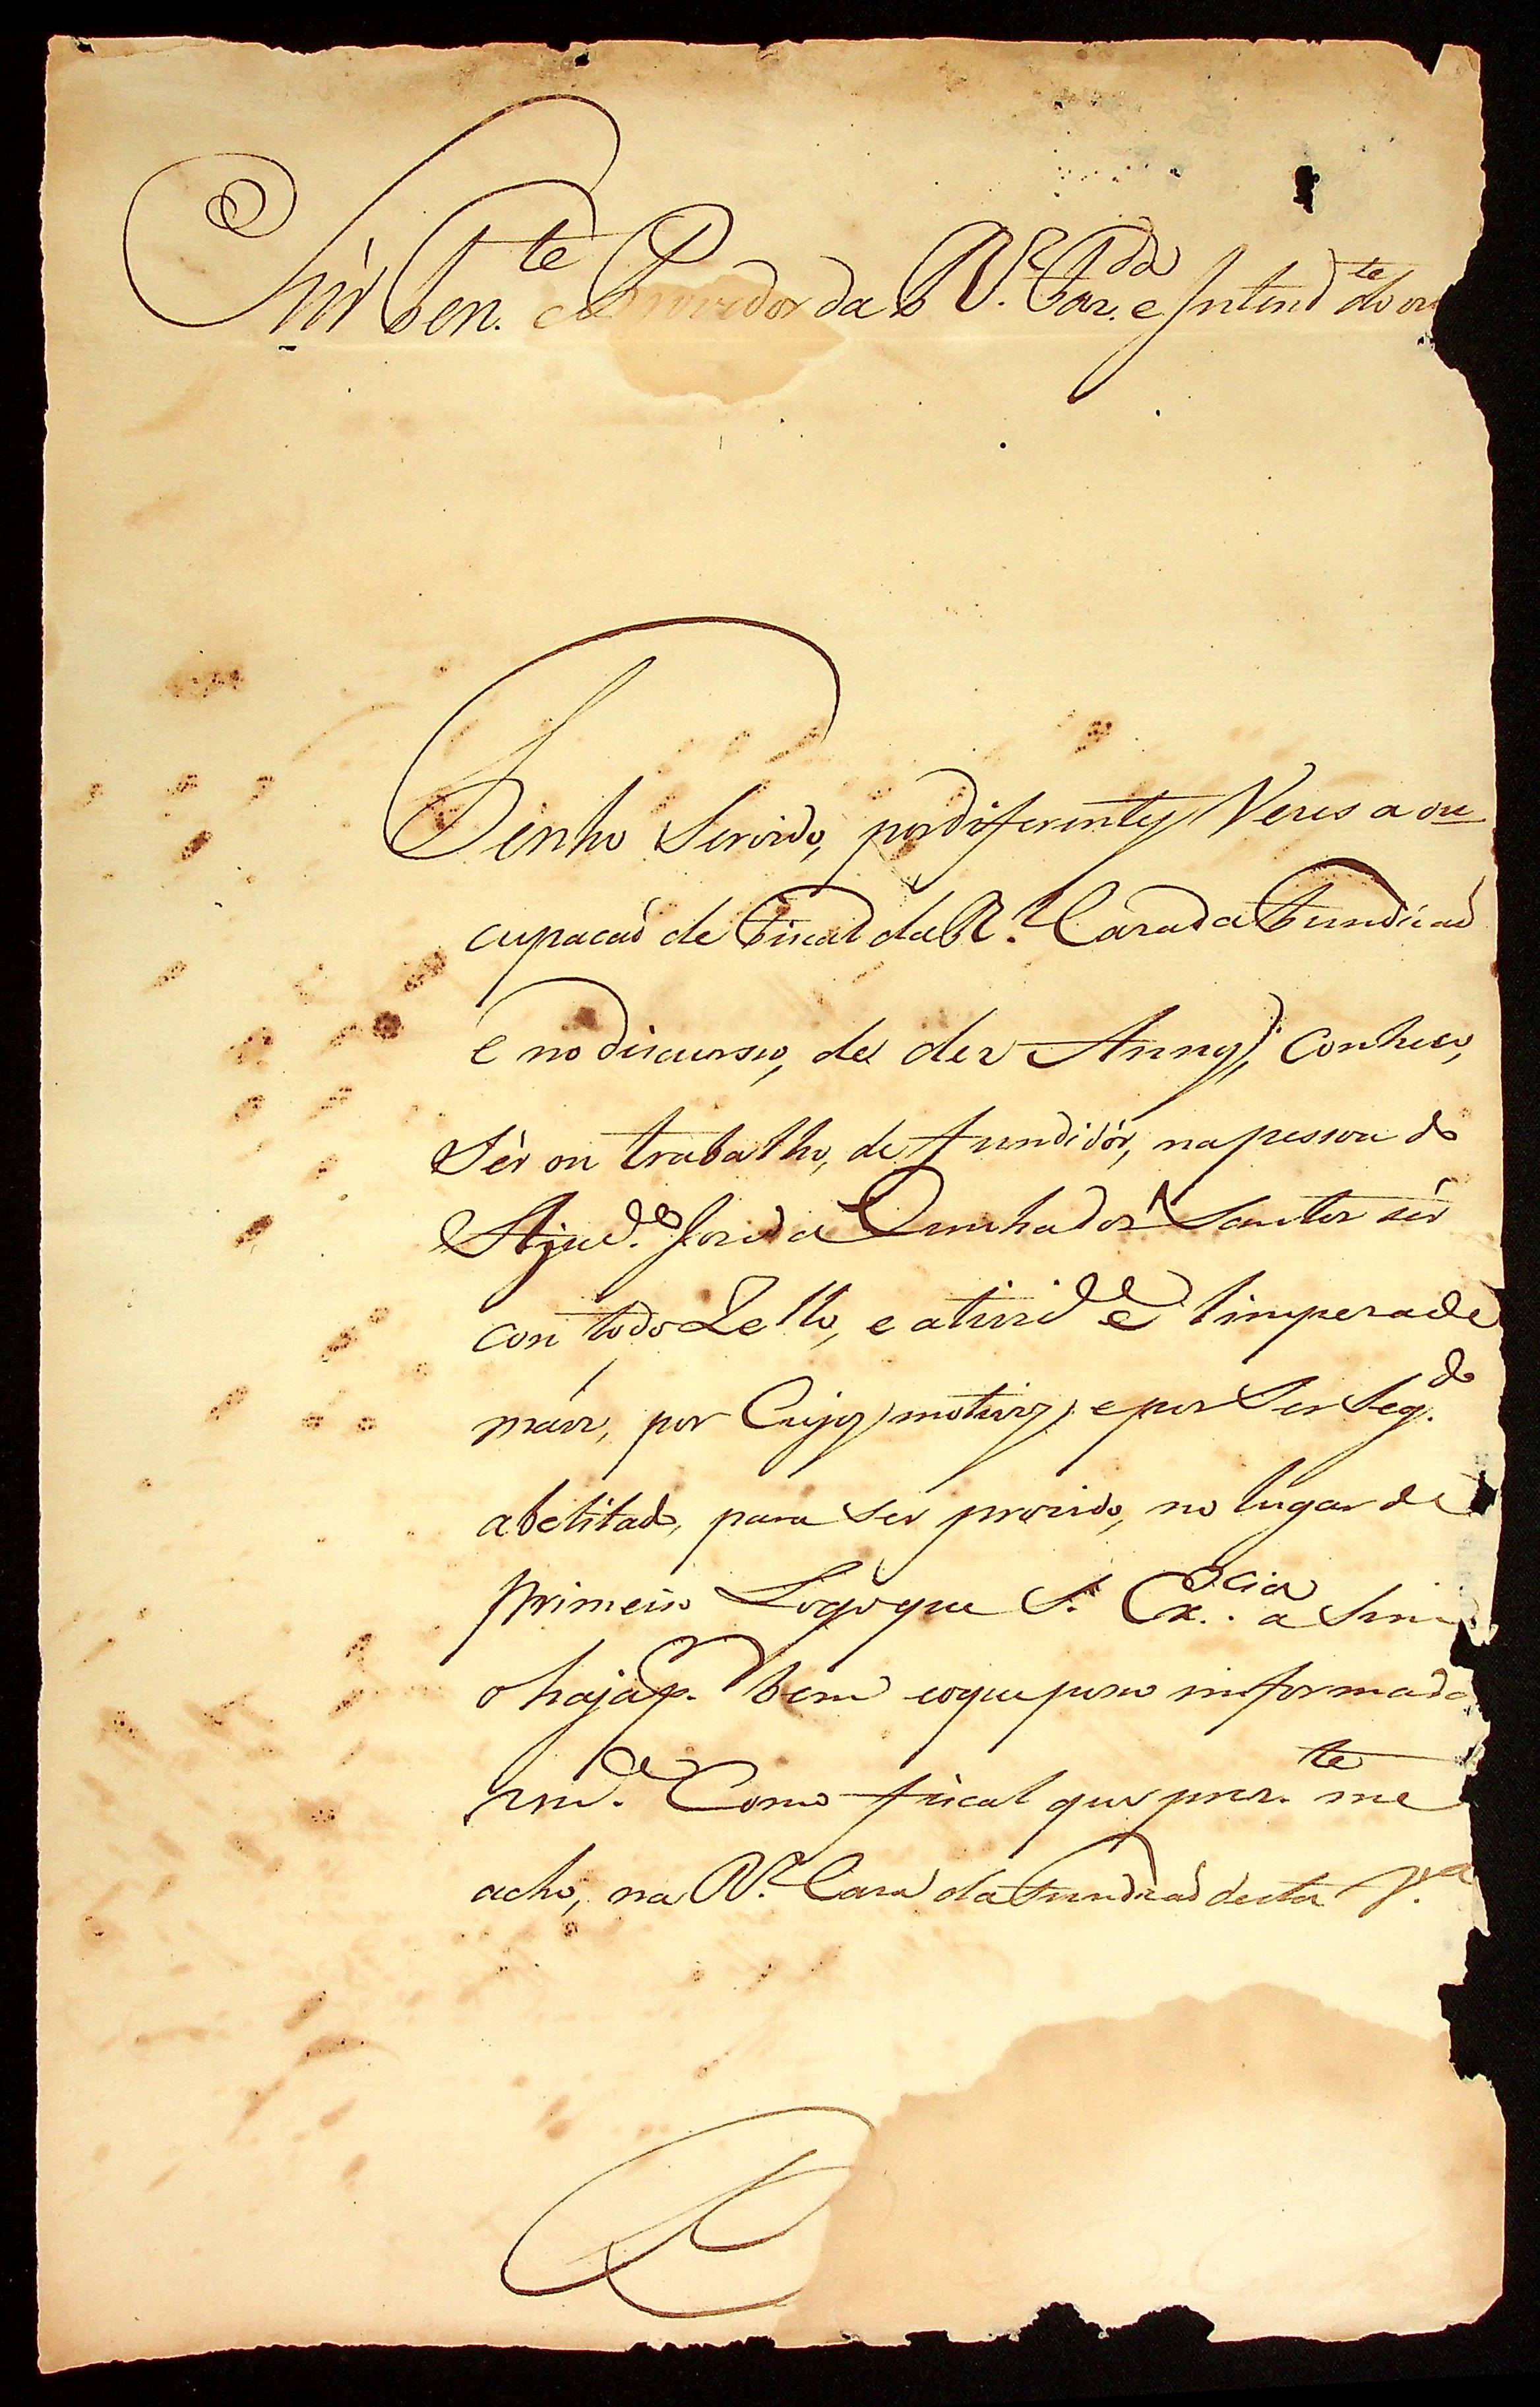 Snr̀ Ten.te e Provedor da R.l Faz.da e Intend.te do ou
Tenho Servido, por diferentes Vezes a ou
cupacaó de Fiscal da R.l Casa da Fundicaó
e no discurso, de dez Annos, conheco,
Sèr on trabalho, de fundidór, na pessoa do
Ajud.e Jose da Cunha dos Santos sèr
con todo Zello, e ativid.e e limpeza de
máos, por Cujos motivos, e por Ser Seg.do
abelitado, para ser provido, no lugar de
Primeiro Logo que S. Ex.cia a Sim
o haja p. bem eo que poso informar a
vm.ce Como fiscal que prez.te me
acho, na R.l Casa da Fundicaó desta V.a